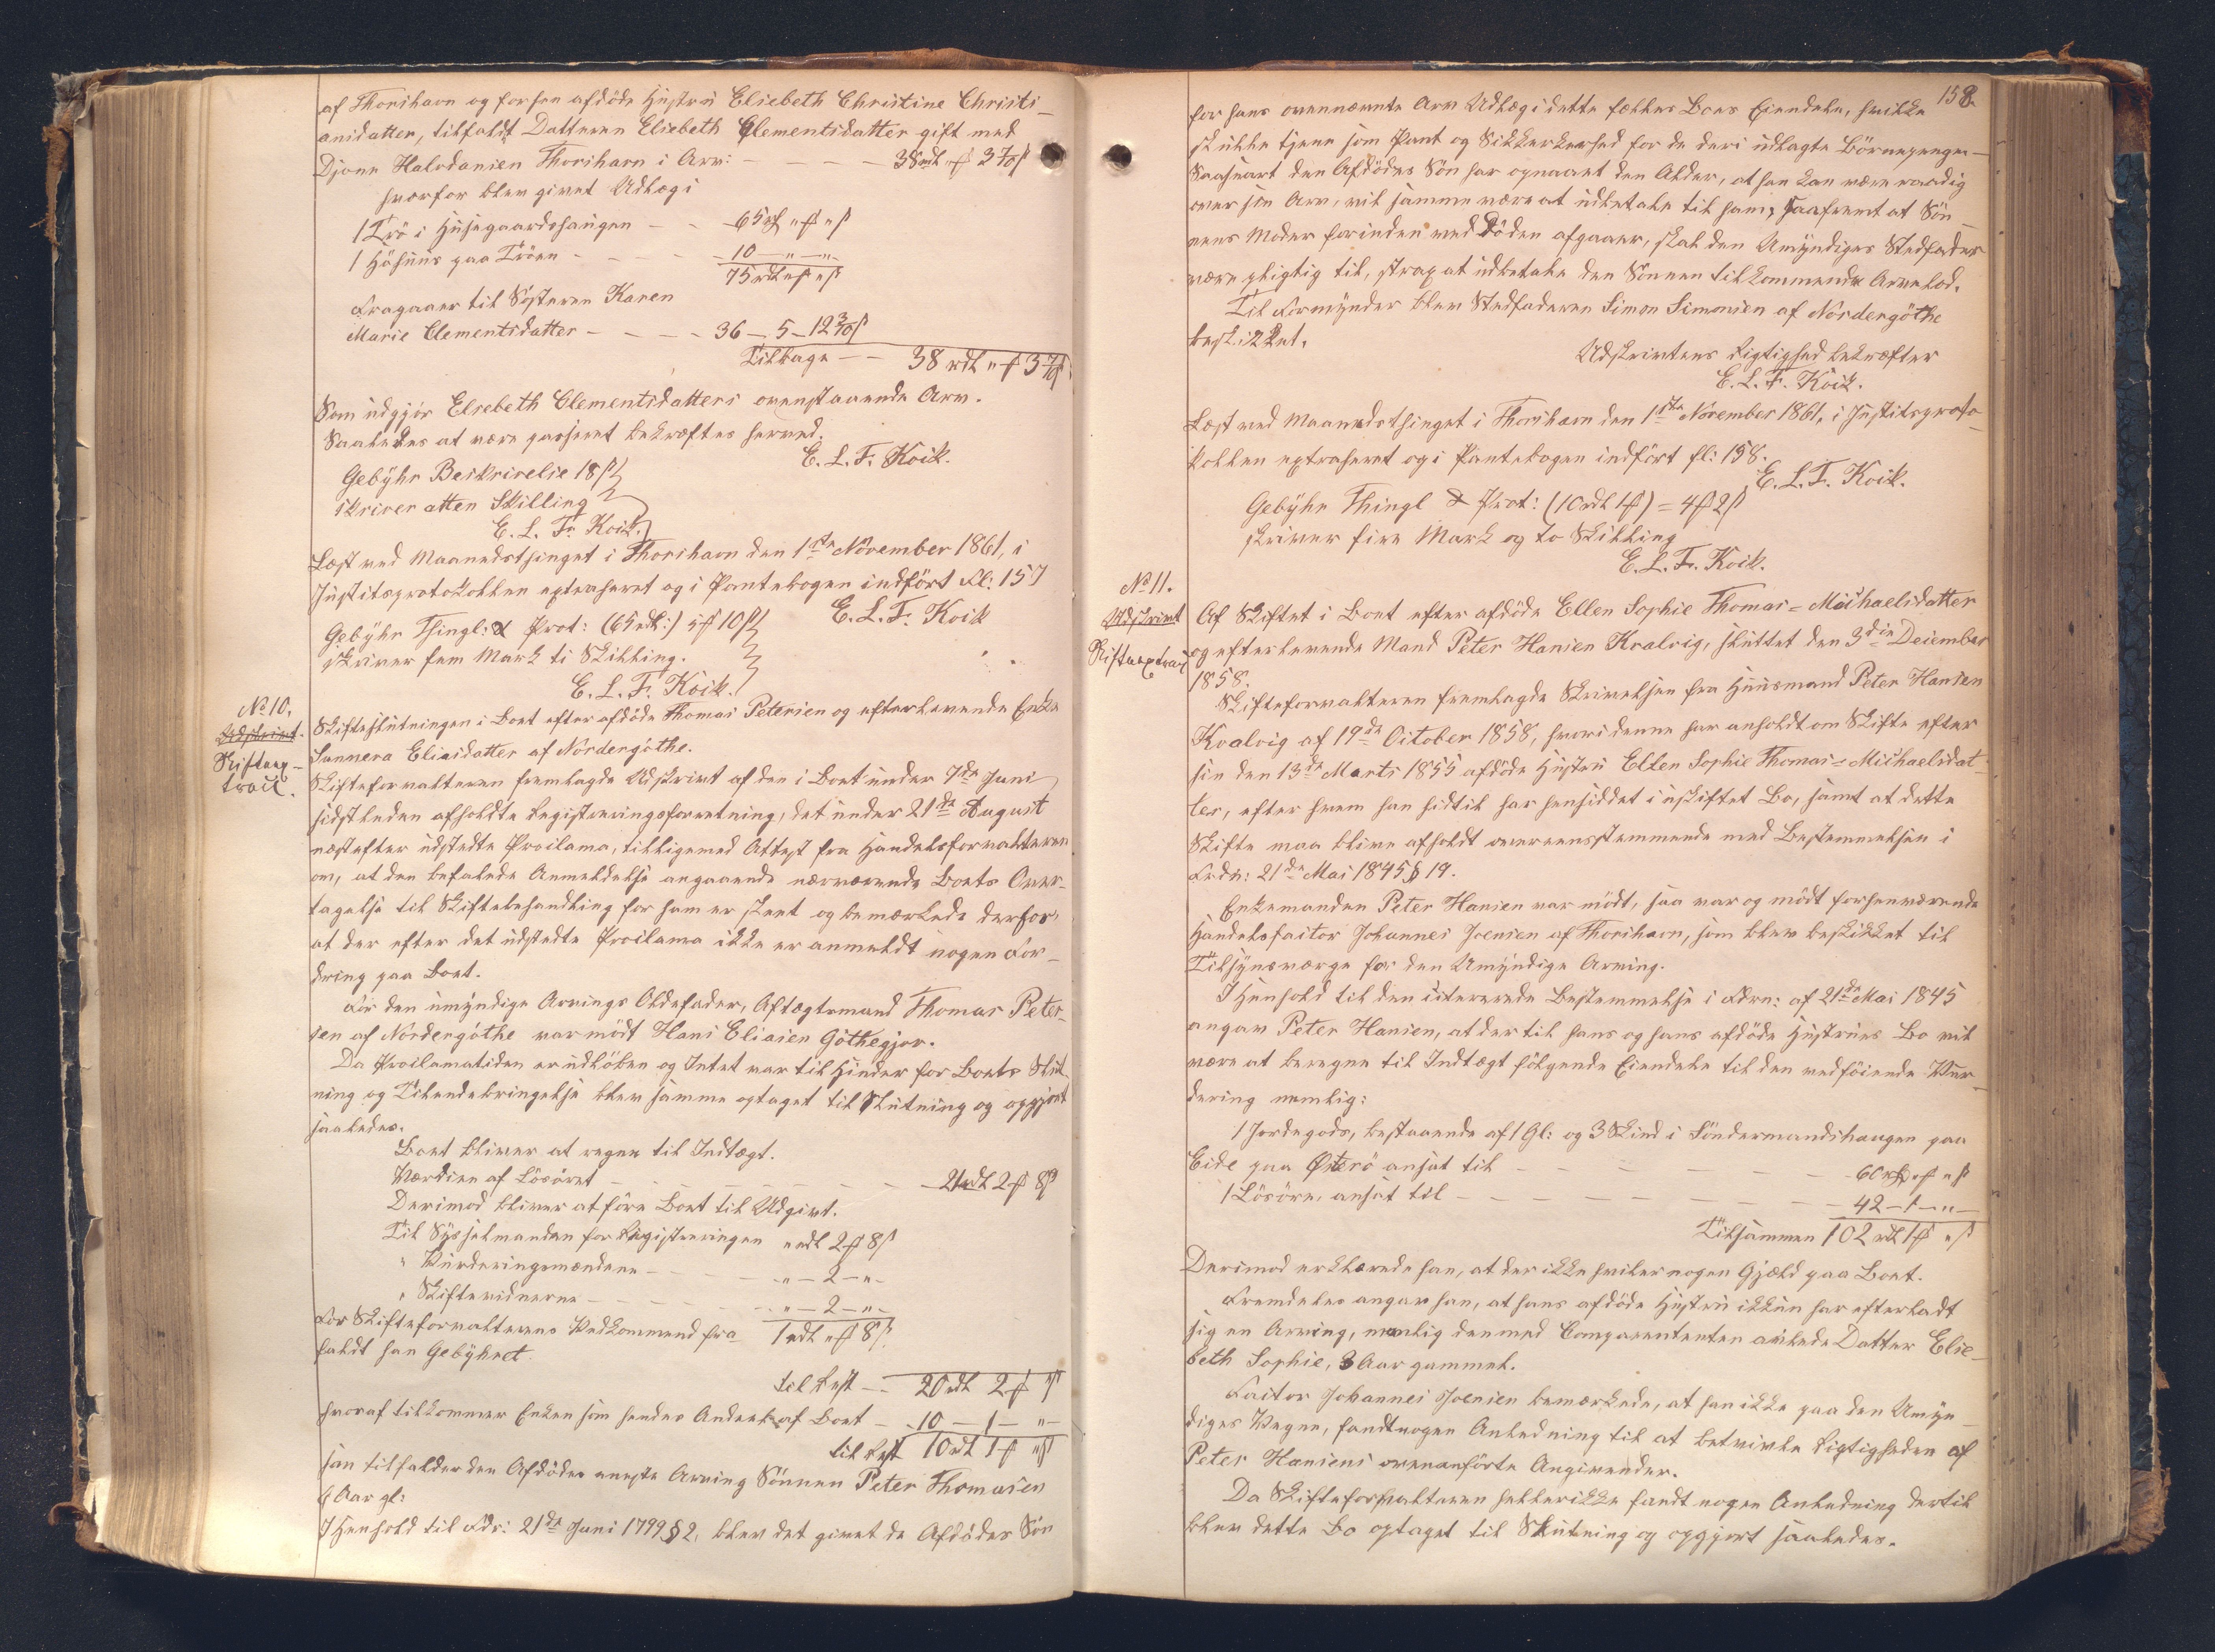 af Thorshavn og forhen afdöde Hustru Elisebeth Christine Christi-
ansdatter, tilfaldt Datteren Elsebeth Clementsdatter gift med
Djone Halvdansen Thorshavn i Arv: — — — 38 rdl „ ₰ 3 7/10 ß
hvorfor blev givet Udlæg i
1 Trö i Husegaardshaugen — - 65 rd „ ₰ „ ß
1 Höhuus paa Tröen - - - - 10 — „ — „ -
75 rdl „ ₰ „ ß
Fragaaer til Sösteren Karen
Marie Clementsdatter — — — 36 — 5 — 12 3/10 ß
Tilbage — — 38 rdl „ ₰ 3 7/10 ß
Som udgjör Elsebeth Clementsdatters ovenstaaende Arv.
Saaledes at være passeret bekræftes herved.
E. L. F. Koik.
Gebyhr Beskrivelse 18 ß
skriver atten Skilling
E. L. F. Koik.
Læst ved Maanedsthinget i Thorshavn den 1ste November 1861, i
Justitsprotokollen extraheret og i Pantebogen indfört Fl: 157
E. L. F. Koik
Gebyhr Thingl: & Prot: (65 rdl:) 5 ₰ 10 ß
skriver fem Mark ti Skilling.
E. L. F. Koik.
No 10.
Udskrivt.
Skifteex-
tract.
Skifteslutningen i Boet efter afdöde Thomas Petersen og efterlevende Enke
Sunneva Eliasdatter af Nordengöthe.
Skifteforvalteren fremlagde Udskrivt af den i Boet under 7de Juni
sidstleden afholdte Registreringsforretning, det under 21de August
næstefter udstedte Proclama, tilligemed Attest fra Handelsforvalteren
om, at den befalede Anmeldelse angaaende nærværende Boets Over-
tagelse til Skiftebehandling for ham er skeet og bemærkede derfor,
at der efter det udstedte Proclama ikke er anmeldt nogen For-
dring paa Boet.
For den umyndige Arvings Oldefader, Aftægtsmand Thomas Peter-
sen af Nordengöthe var mödt Hans Eliasen Göthegjov.
Da Proclamatiden er udlöben og Intet var til Hinder for Boets Slut-
ning og Tilendebringelse blev samme optaget til Slutning og opgjort
saaledes.
Boet bliver at regne til Indtægt.
Værdien af Lösöret — — — — — — 21 rdl 2 ₰ 8 ß
Derimod bliver at före Boet til Udgivt.
Til Sysselmanden for Registreringen „ rdl 2 ₰ 8 ß
„ Vurderingsmændene — — — - „ — 2 — „ -
„ Skiftevidnerne — — — - „ — 2 — „ -
For Skifteforvalterens Vedkommend fra- 1 rdl „ ₰ 8 ß
faldt han Gebyhret.
til Rest — - 20 rdl 2 ₰ „ ß
hvoraf tilkommer Enken som hendes Andeel af Boet — - 10 — 1 — „ —
til Rest 10 rdl 1 ₰ „ ß
som tilfalder den Afdödes eneste Arving Sönnen Peter Thomasen
6 Aar gl:
I Henhold til Fdr: 21de Juni 1799 § 2, blev det givet de Afdödes Sön
158.
for hans ovennævnte Arv Udlæg i dette fælles Boes Eiendele, hvilke
skulle tjene som Pant og Sikkerkerhed for de deri udlagte Börnepenge —
Saasnart den Afdödes Sön har opnaaet den Alder, at han kan være raadig
over sin Arv, vil samme være at udbetale til ham, saafremt at Sön-
nens Moder forinden ved Döden afgaaer, skal den Umyndiges Stedfader
være pligtig til, strax at udbetale den Sönnen tilkommende Arvelod.
Til Formynder blev Stedfaderen Simon Simonsen af Nordengöthe
beskikket.
Udskrivtens Rigtighed bekræfter
E. L. F. Koik.
Læst ved Maanedsthinget i Thorshavn den 1ste November 1861, i Justitsproto-
kollen extraheret og i Pantebogen indfört fl: 158.
E. L. F. Koik.
Gebyhr Thingl & Prot: (10 rdl 1 ₰) = 4 ₰ 2 ß
skriver fire Mark og to Skilling
E. L. F. Koik.
No 11.
Udskrivt
Skifteextract
Af Skiftet i Boet efter afdöde Ellen Sophie Thomas = Michaelsdatter
og efterlevende Mand Peter Hansen Kvalvig, sluttet den 3die December
1858.
Skifteforvalteren fremlagde Skrivelsen fra Huusmand Peter Hansen
Kvalvig af 19de October 1858, hvori denne har anholdt om Skifte efter
sin den 13de Marts 1855 afdöde Hustru Ellen Sophie Thomas = Michaelsdat-
ter, efter hvem han hidtil har hensiddet i uskiftet Bo, samt at dette
Skifte maa blive afholdt overeensstemmende med Bestemmelsen i
Frdn: 21de Mai 1845 § 19.
Enkemanden Peter Hansen var mödt, saa var og mödt forhenværende
Handelsfactor Johannes Joensen af Thorshavn, som blev beskikket til
Tilsynsværge for den Umyndige Arving.
I Henhold til den citererede Bestemmelse i Fdrn: af 21de Mai 1845
angav Peter Hansen, at der til hans og hans afdöde Hustrues Bo vil
være at beregne til Indtægt fölgende Eiendele til den vedföiende Vur-
dering nemlig:
1 Jordegods, bestaaende af 1 Gl: og 3 Skind i Söndermandshaugen paa
Eide paa Österö ansat til — — — — — — 60 rdl „ ₰ „ ß
1 Lösöre, ansat til — — — — — — — 42 — 1 — „ —
Tilsammen 102 rdl 1 ₰ „ ß
Derimod erklærede han, at der ikke hviler nogen Gjæld paa Boet.
Fremdeles angav han, at hans afdöde Hustru ikkun har efterladt
sig en Arving, nemlig den med Comparententen avlede Datter Else-
beth Sophie, 8 Aar gammel.
Factor Johannes Joensen bemærkede, at han ikke paa den Umyn-
diges Vegne, fandt nogen Anledning til at betvivle Rigtigheden af
Peter Hansens ovenanförte Angivender.
Da Skifteforvalteren heller ikke fandt nogen Anledning dertil
blev dette Bo optaget til Slutning og opgjort saaledes.